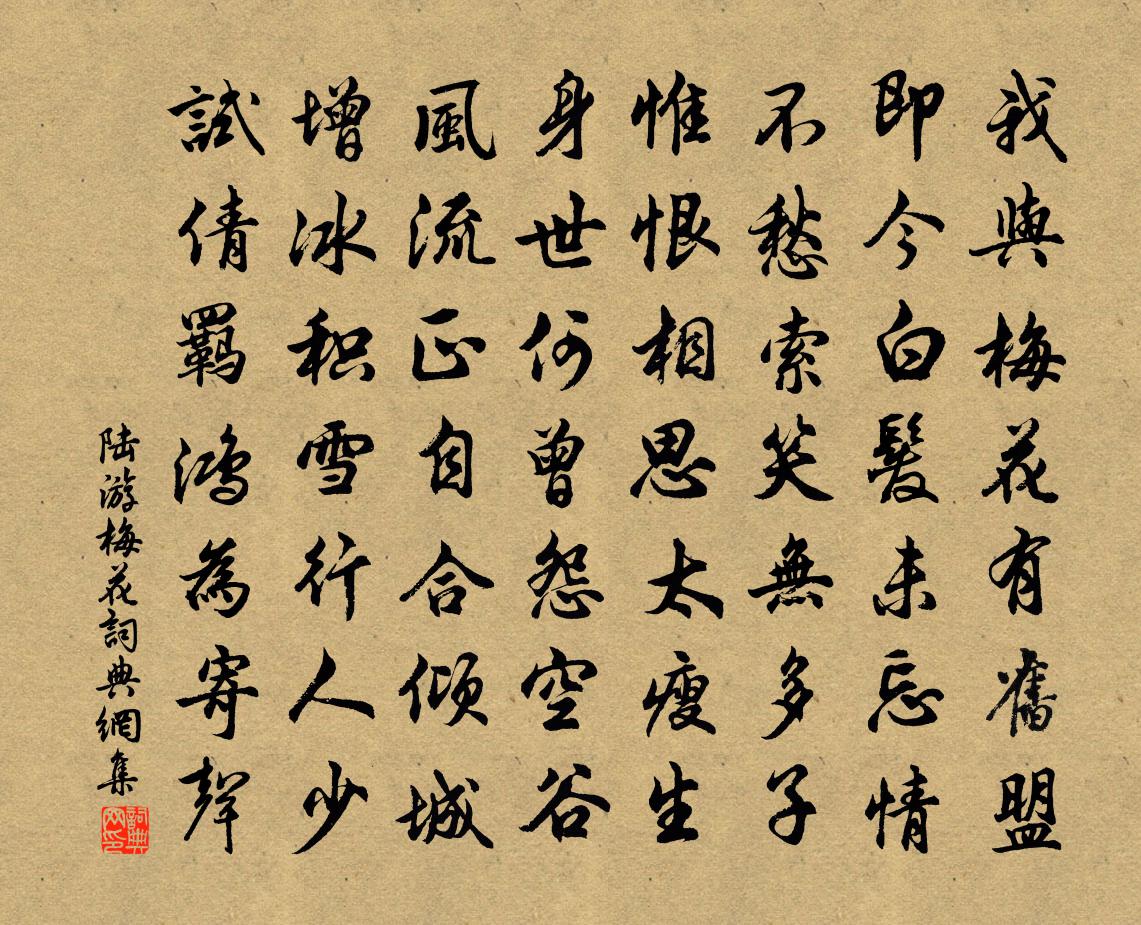 我與梅花有舊盟
即今白髮未忘情
不愁索笑無多子
惟恨相思太瘦生
身世何曾怨空谷
風流正自合傾城
增冰积雪行人少
試倩羈鴻為寄聲
陆游梅花詞典網集
詞典網印